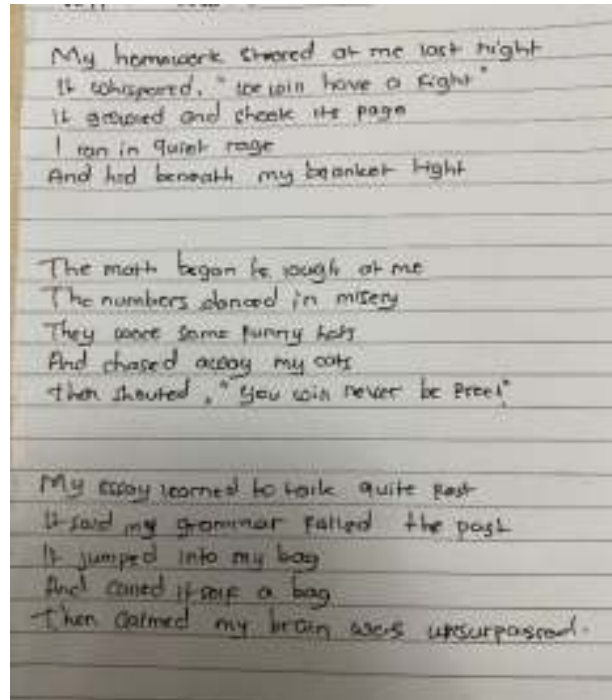 My homework stared at me last night
It whispered, "we win have a fight"
It growled and shook its page
I ran in quiet rage
And hid beneath my branket tight
The math began to lough at me
The numbers danced in misery
They wore some funny hats
And chased away my cats
then shouted, "you win never be free!"
My essay learned to talk quite fast
It said my grammar failed the past
It jumped into my bag
And caned itself a bag
Then claimed my brain was unsurpassed.